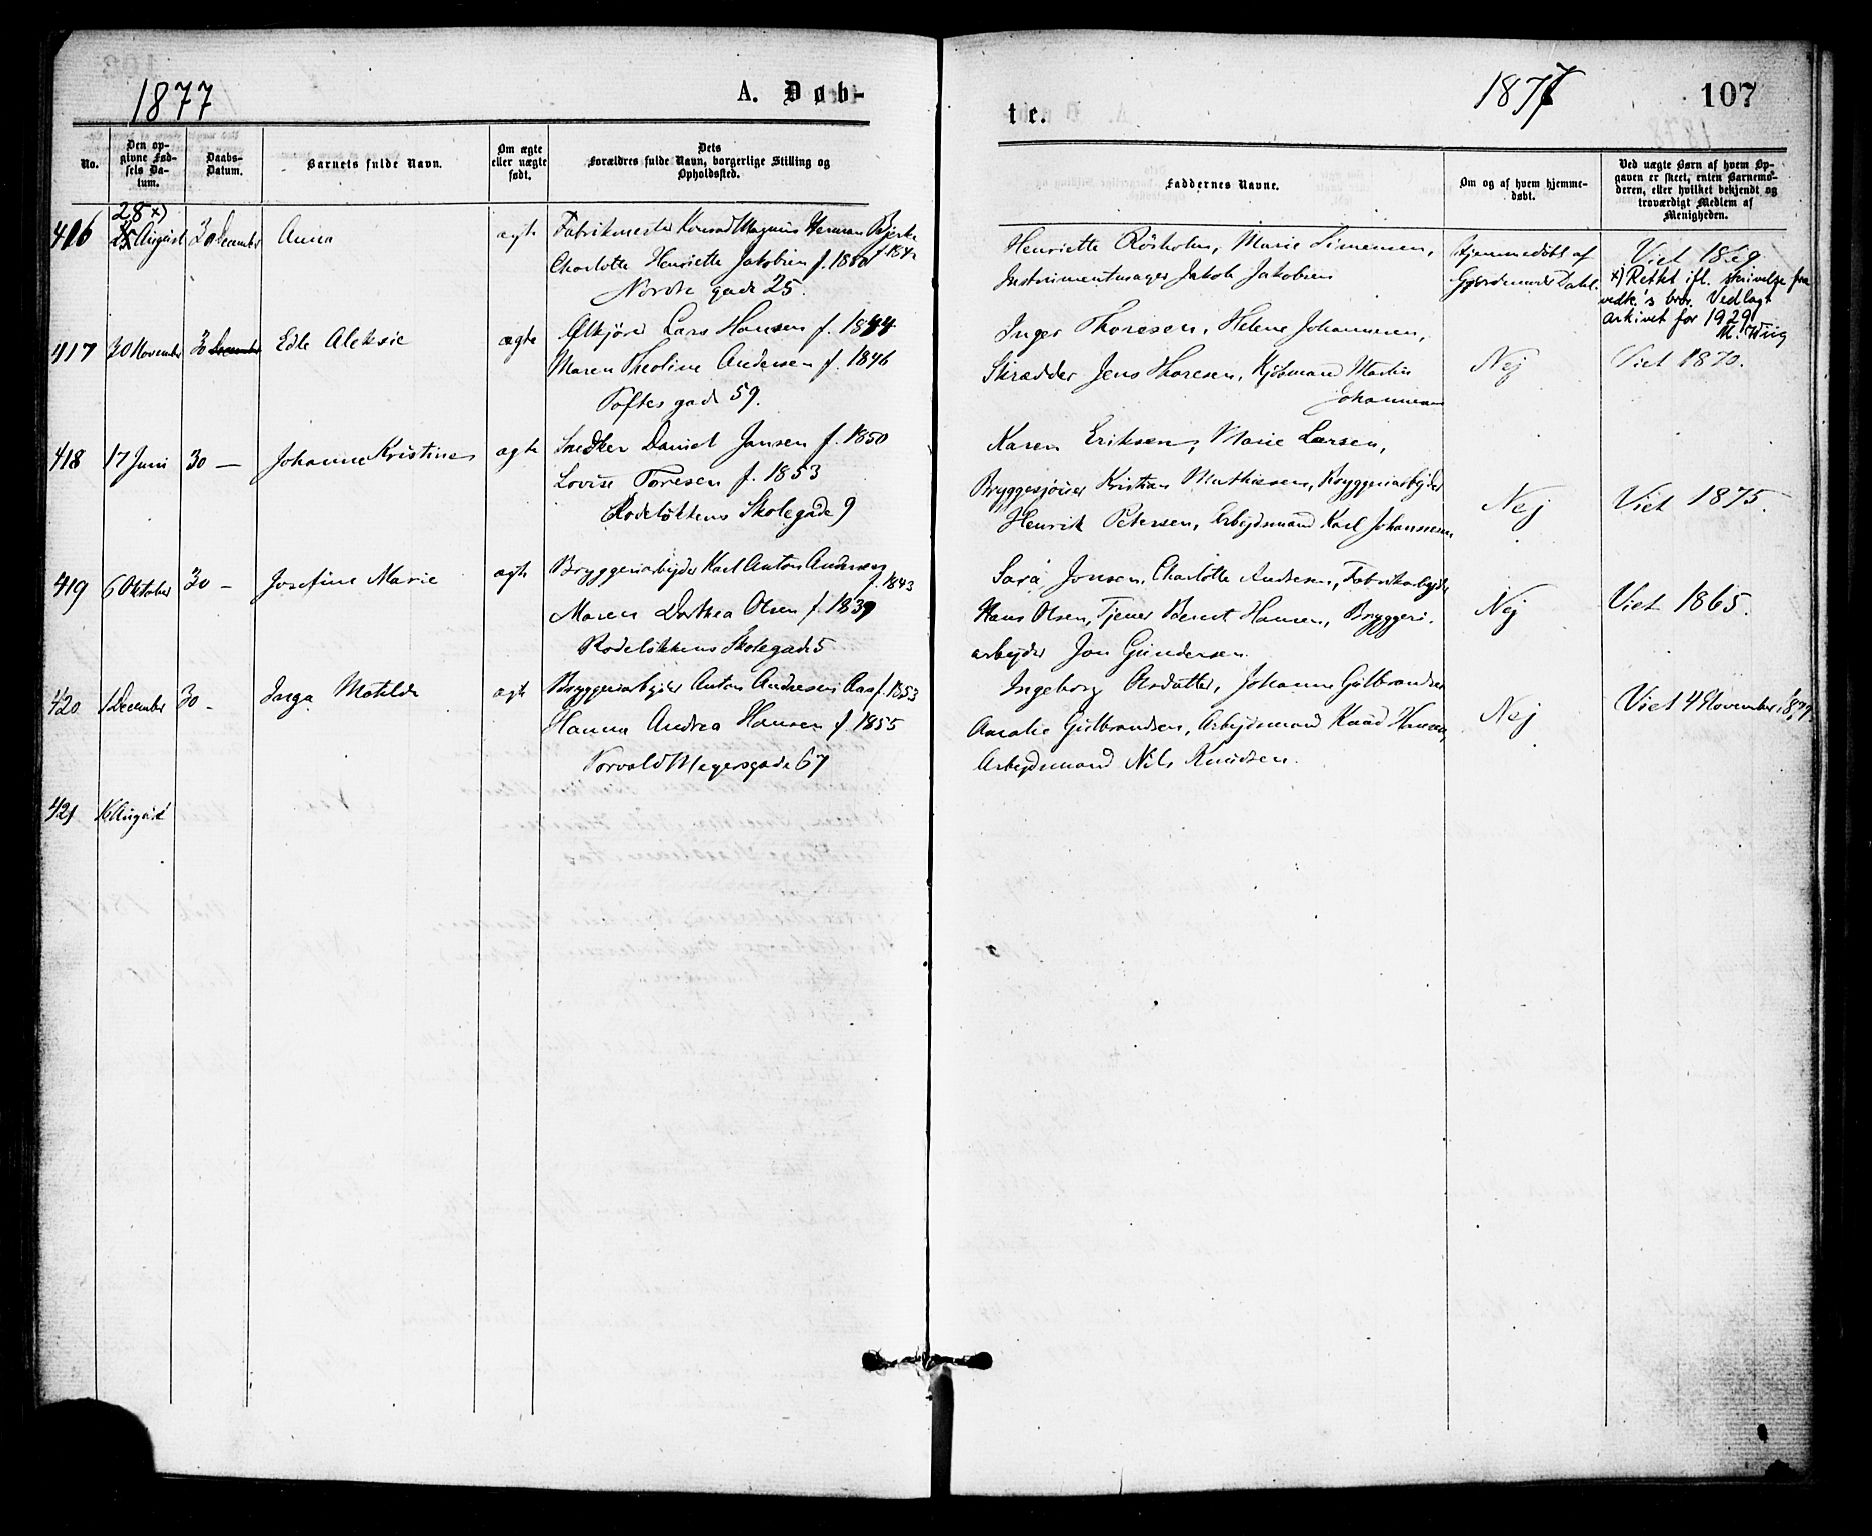 1877
A. Døb-
No.
Den op-
givne Fød-
sels Da-
tum.
Daabs-
Datum.
Barnets fulde Navn.
Om ægte
eller uægte
født.
Dets
Forældres fulde Navn, borgerlige Stilling og
Opholdssted.
416
28 x)
25 August
30 December
Anna
ægte
Fabrikmester Konrad Magnus Herman Bjerke
f. 184
Charlotte Henriette Jakobsen f. 1850
Nordre gade 25.
417
30 November
30 December
Edle Aleksie
ægte
Ølkjører Lars Hansen f. 1844
Maren Theoline Andersen f. 1846
Toftes gade 59.
418
17 Juni
30 —
Johanne Kristine
ægte
Snedker Daniel Jansen f. 1850
Lovise Toresen f. 1853
Rodeløkkens Skolegade 9
419
6 Oktober
30 –
Josefine Marie
ægte
Bryggeriarbejder Karl Anton Andersen
f. 1843
Maren Dorthea Olsen f. 1839
Rodeløkkens Skolegade 5
420
1 December
30 –
Inga Matilde
ægte
Bryggeriarbejder Anton Andresen Aas f. 1853
Hanna Andrea Hansen f. 1855
Torvald Meyersgade 67
421
16 August
1877
107
te.
Faddernes Navne.
Om og af hvem hjemme-
døbt.
Ved uægte Børn af hvem Op-
gaven er skeet, enten Barnemo-
deren, eller hvilket bekjendt og
troværdigt Medlem af
Menigheden.
Henriette Røsholm, Marie Simensen,
Instrumentmager Jakob Jakobsen
Hjemmedøbt af
Gjordemoder Dahl.
Viet 1869
x) Rettet ifl. skrivelse fra
vedk.'s bror. Vedlagt
arkivet for 1929
M. Wiig
Inger Thoresen, Helene Johannesen,
Skrædder Jens Thoresen, Kjøbmand Martin
Johannesen
Nej
Viet 1870.
Karen Eriksen, Marie Larsen,
Bryggesjouer Kristian Mathiesen, Bryggeriarbejder
Henrik Petersen, Arbejdsmand Karl Johannesen
Nej
Viet 1875.
Sara Jonsen, Charlotte Andresen, Fabrikarbejder
Hans Olsen, Tjener Bernt Hansen, Bryggeri-
arbejder Jon Gundersen.
Nej
Viet 1865.
Ingeborg Olsdatter, Johanne Gulbrandsen
Amalie Gulbrandsen, Arbejdsmand Knud Hansen,
Arbejdsmand Nils Knudsen.
Nej
Viet 4 November 1877.